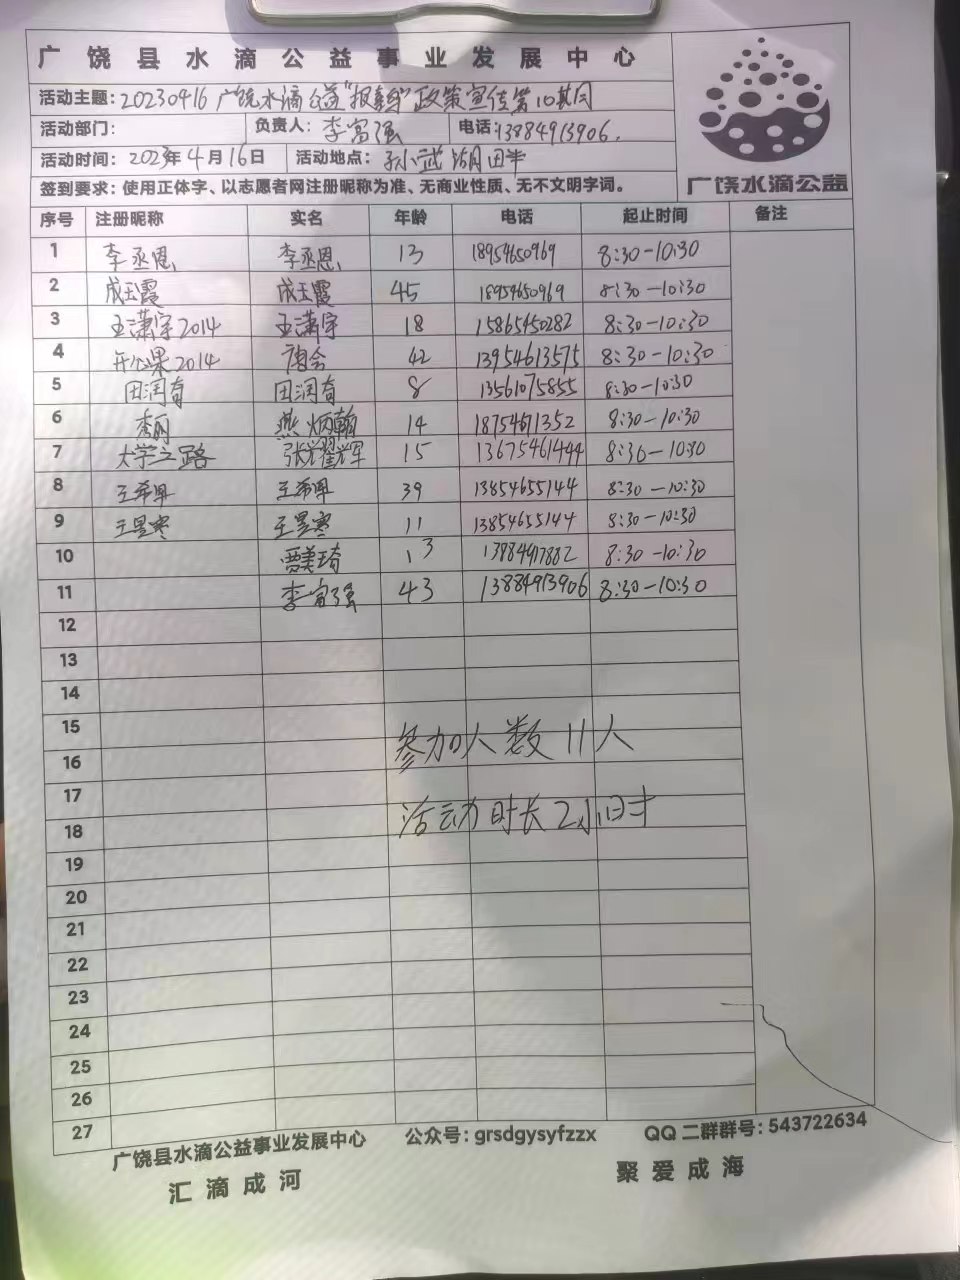 广饶县水滴公益事业发展中心
活动主题:20230416广饶水滴公益"报新"政策宣传第10期
活动部门: 负责人:李富强 电话:13884913906.
活动时间:2023年4月16日 活动地点:孙武湖田半
签到要求:使用正体字、以志愿者网注册昵称为准、无商业性质、无不文明字词。
广饶水滴公益
序号 注册昵称 实名 年龄 电话 起止时间 备注
1 李丞恩 李丞恩 13 18954650969 8:30-10:30
2 成玉霞 成玉霞 45 18954650969 8:30-10:30
3 王潇宇2014 王潇宇 18 15865450282 8:30-10:30
4 2014 42 13954613575 8:30-10:30
5 田润育 田润育 8 13561075855 8:30-10:30
6 秀丽 燕炳翰 14 18754671352 8:30-10:30
7 大学之路 张耀辉 15 13675461444 8:30-10:30
8 王希军 王希军 39 13854655144 8:30-10:30
9 王昱寒 王昱寒 11 13854655144 8:30-10:30
10 贾美琦 13 13884917882 8:30-10:30
11 李富强 43 13884913906 8:30-10:30
12
13
14
15
参加人数11人
16
17
活动时长2小时
18
19
20
21
22
23
24
25
26
27
广饶县水滴公益事业发展中心 公众号:grsdgysyfzzx QQ二群群号:543722634
汇滴成河 聚爱成海